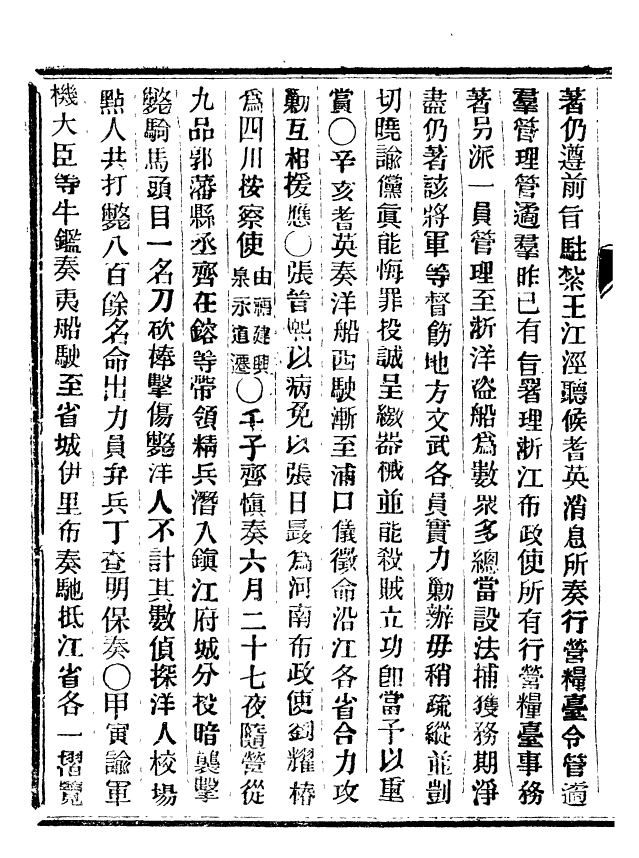 著仍遵前旨駐紮王江涇聽候耆英消息所奏行營糧臺令管遹
羣管理管遹羣昨已有旨署理浙江布政使所有行營糧臺事務
著另派一員管理至浙洋盜船為數眾多總當設法捕獲務期淨
盡仍著該將軍等督飭地方文武各員實力勦辦毋稍疏縱並剴
切曉諭儻眞能悔罪投誠呈繳器械並能殺賊立功卽當予以重
賞○辛亥耆英奏洋船西駛漸至浦口儀徵命沿江各省合力攻
勦互相援應○張曾以病免以張日晸為河南布政使劉耀椿
為四川按察使由福建興泉永道遷○壬子齊愼奏六月二十七夜隨營從
九品郭藩縣丞齊在鎔等帶領精兵潛入鎭江府城分投暗襲擊
斃騎馬頭目一名刀砍棒擊傷斃洋人不計其數偵探洋人校場
點人共打斃八百餘名命出力員弁兵丁查明保奏○甲寅諭軍
機大臣等牛鑑奏夷船駛至省城伊里布奏馳抵江省各一摺覽